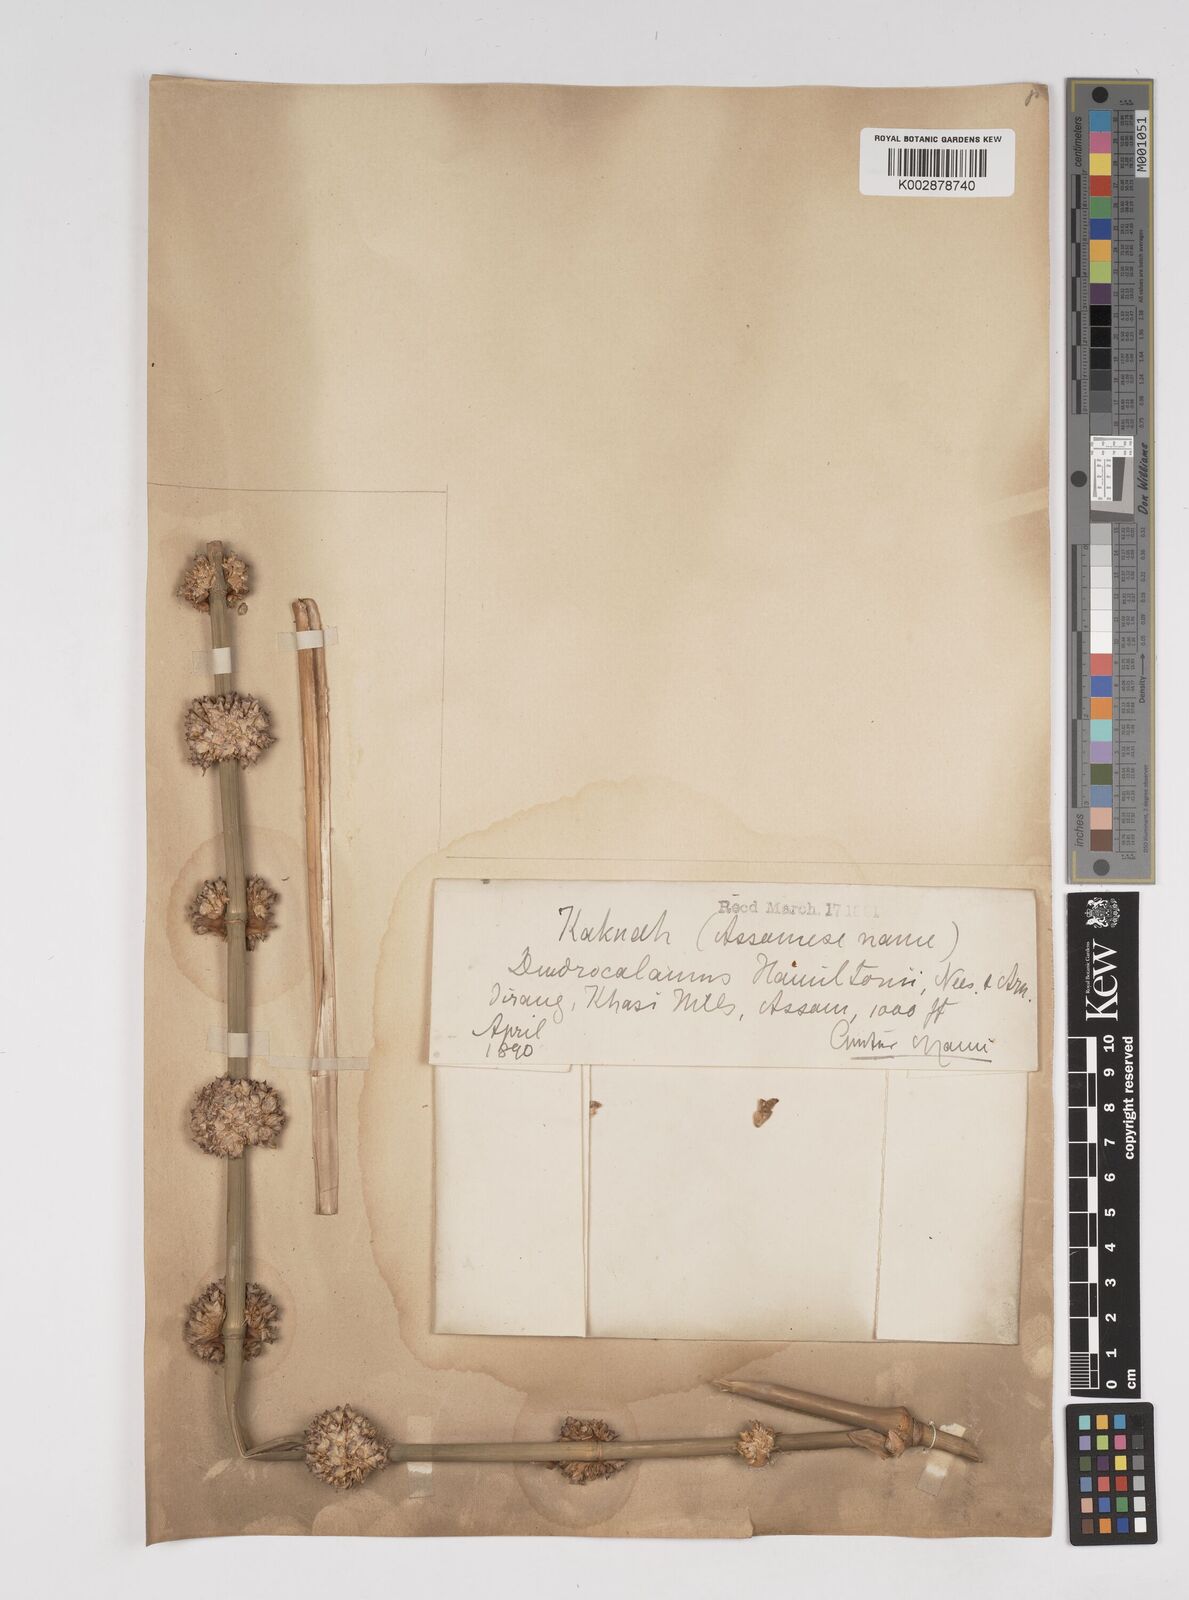 ROYAL BOTANIC GARDENS KEW
K002878740
Recd March. 17 1891
Kaknah (Assamese name)
Dendrocalamus Hamiltonii, Nees. & Arn.
Jirang, Khasi Mlls, Assam, 1000 ft
April
1890
centimeters
M001051
Don Williams
Density
inches
Royal Botanic Gardens
Kew
0 1 2 3 4 5 6 7 8 9 10
cm
copyright reserved